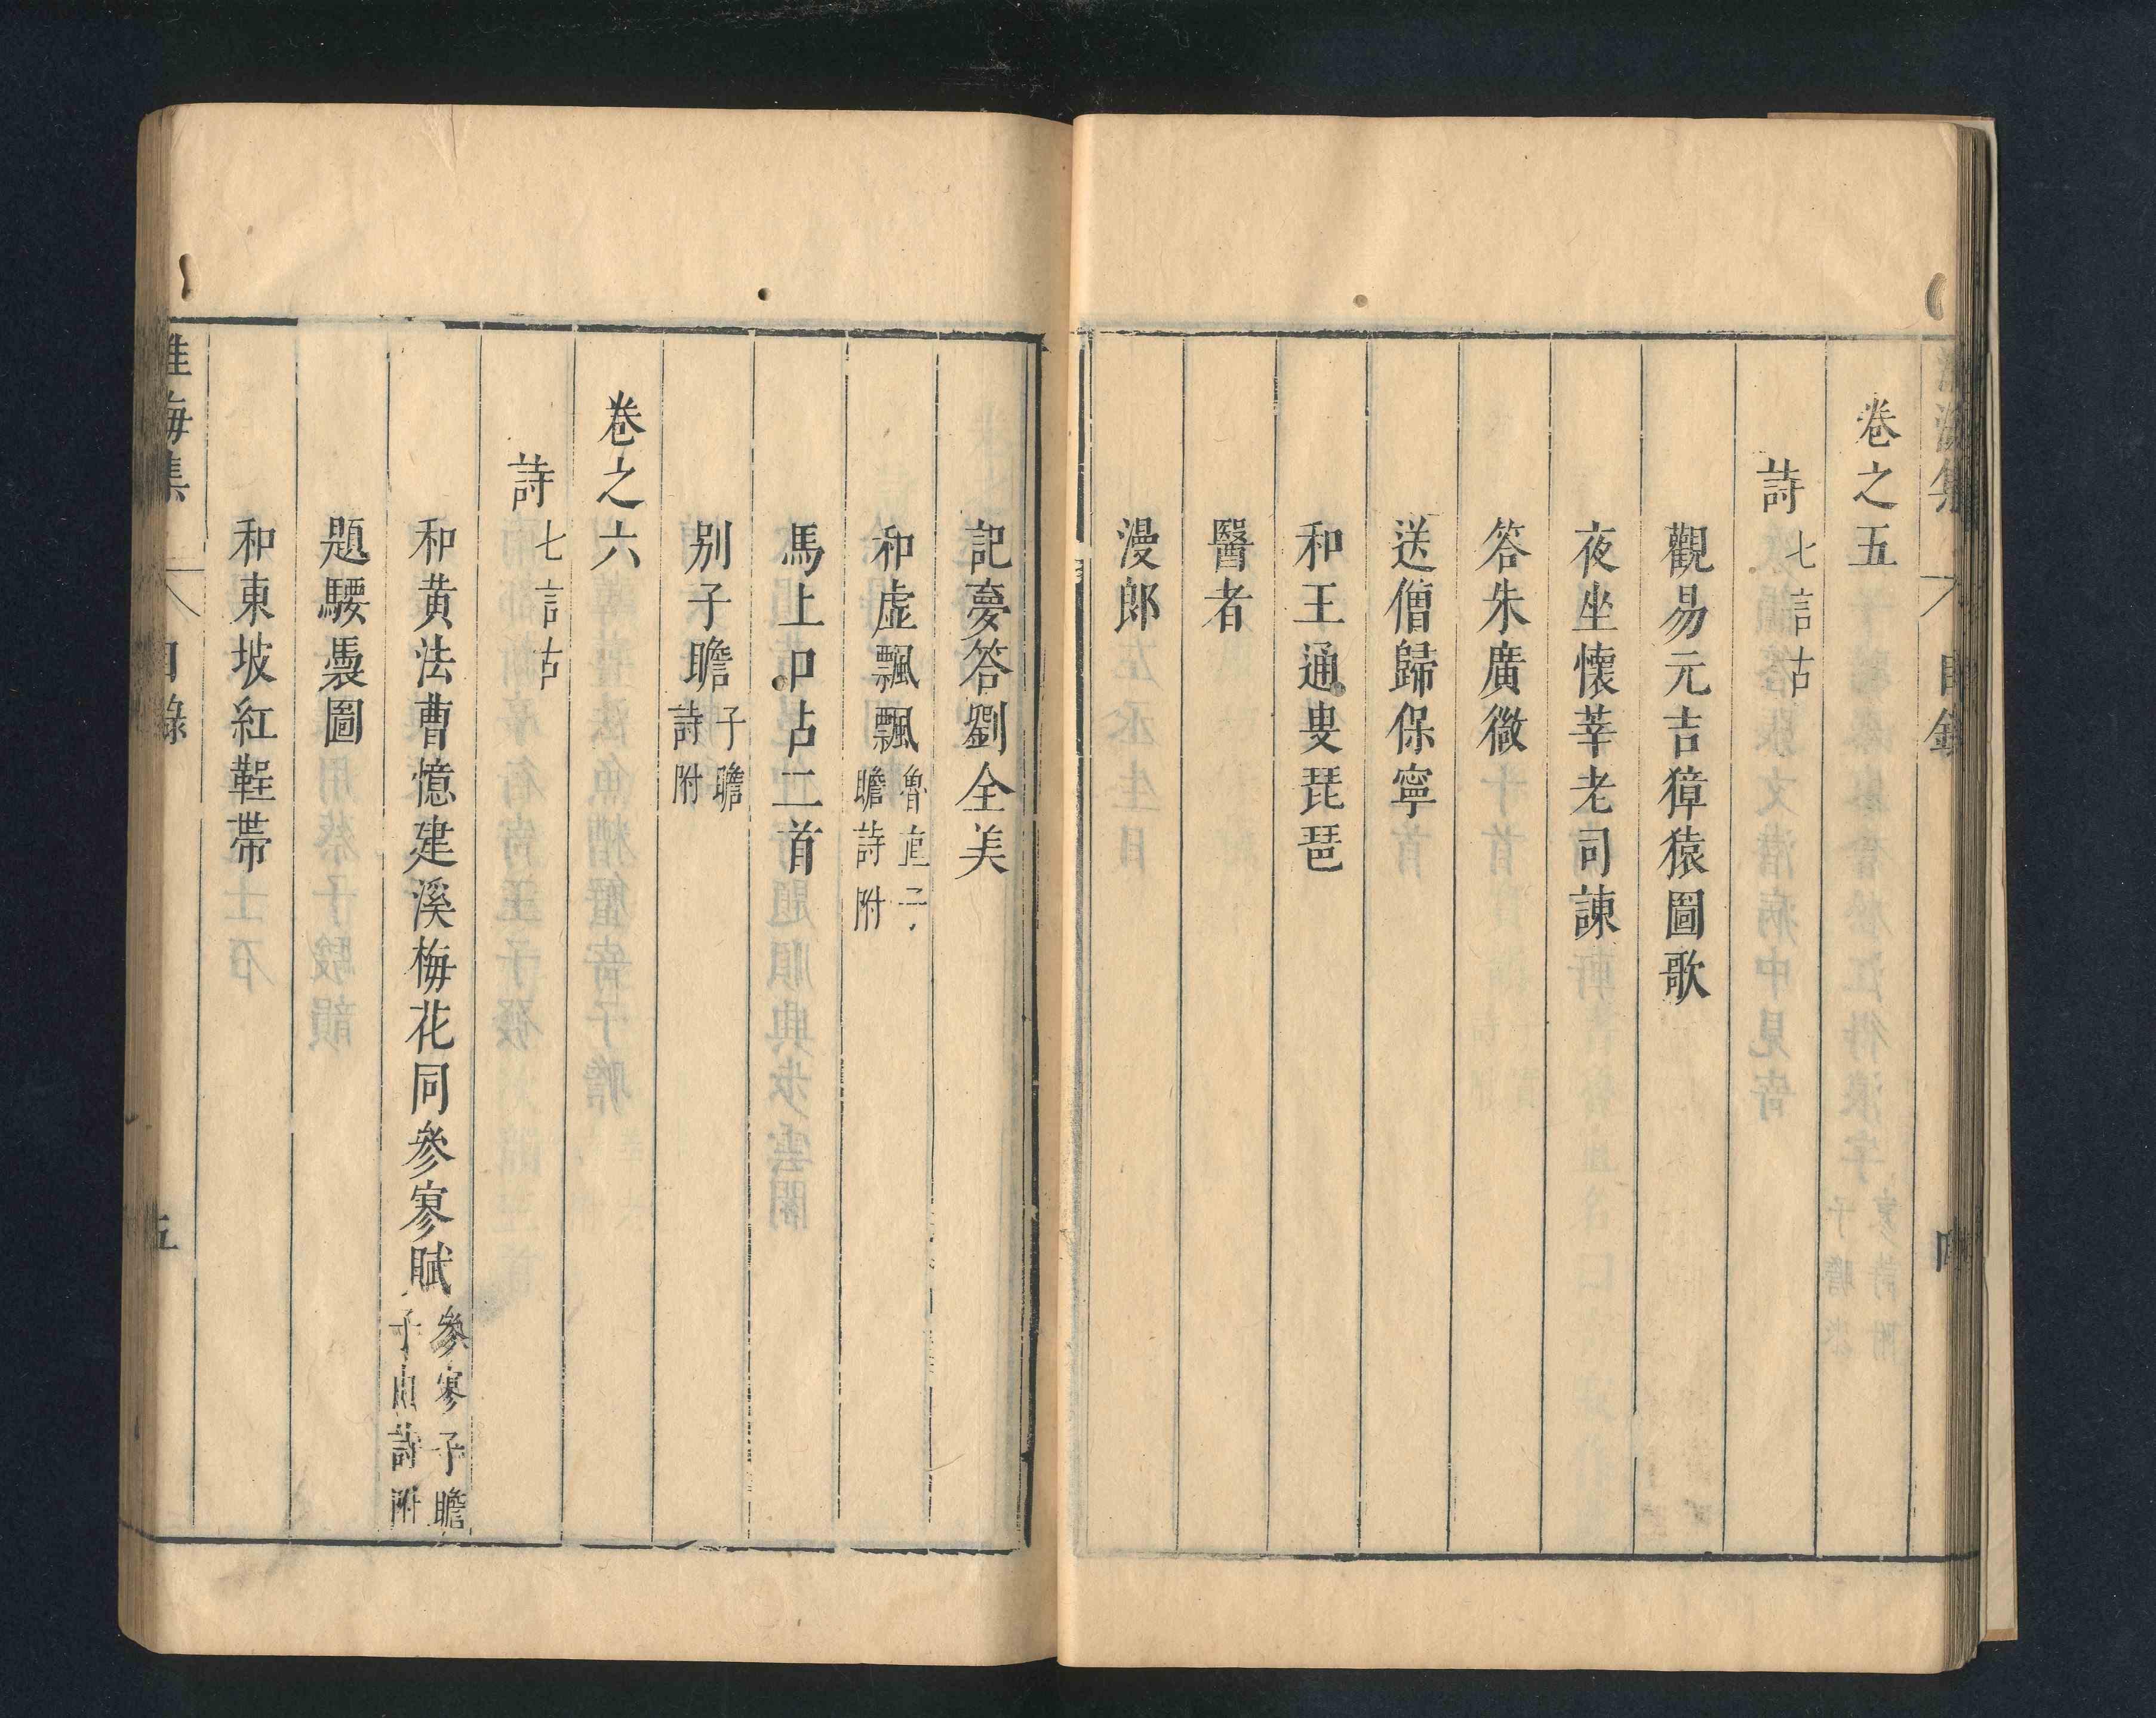 淮海集 目錄 四
卷之五
詩 七言古
觀易元吉獐猿圖歌
夜坐懷莘老司諫
答朱廣微
送僧歸保寧
和王通叟琵琶
醫者
漫郎
記夢答劉全美
和虛飄飄 魯直子瞻詩附
馬上口占二首
别子瞻 子瞻詩附
卷之六
詩 七言古
和黄法曹憶建溪梅花同參寥賦 參寥子瞻子由詩附
題騕褭圖
和東坡紅鞓帶
淮海集 目錄 五